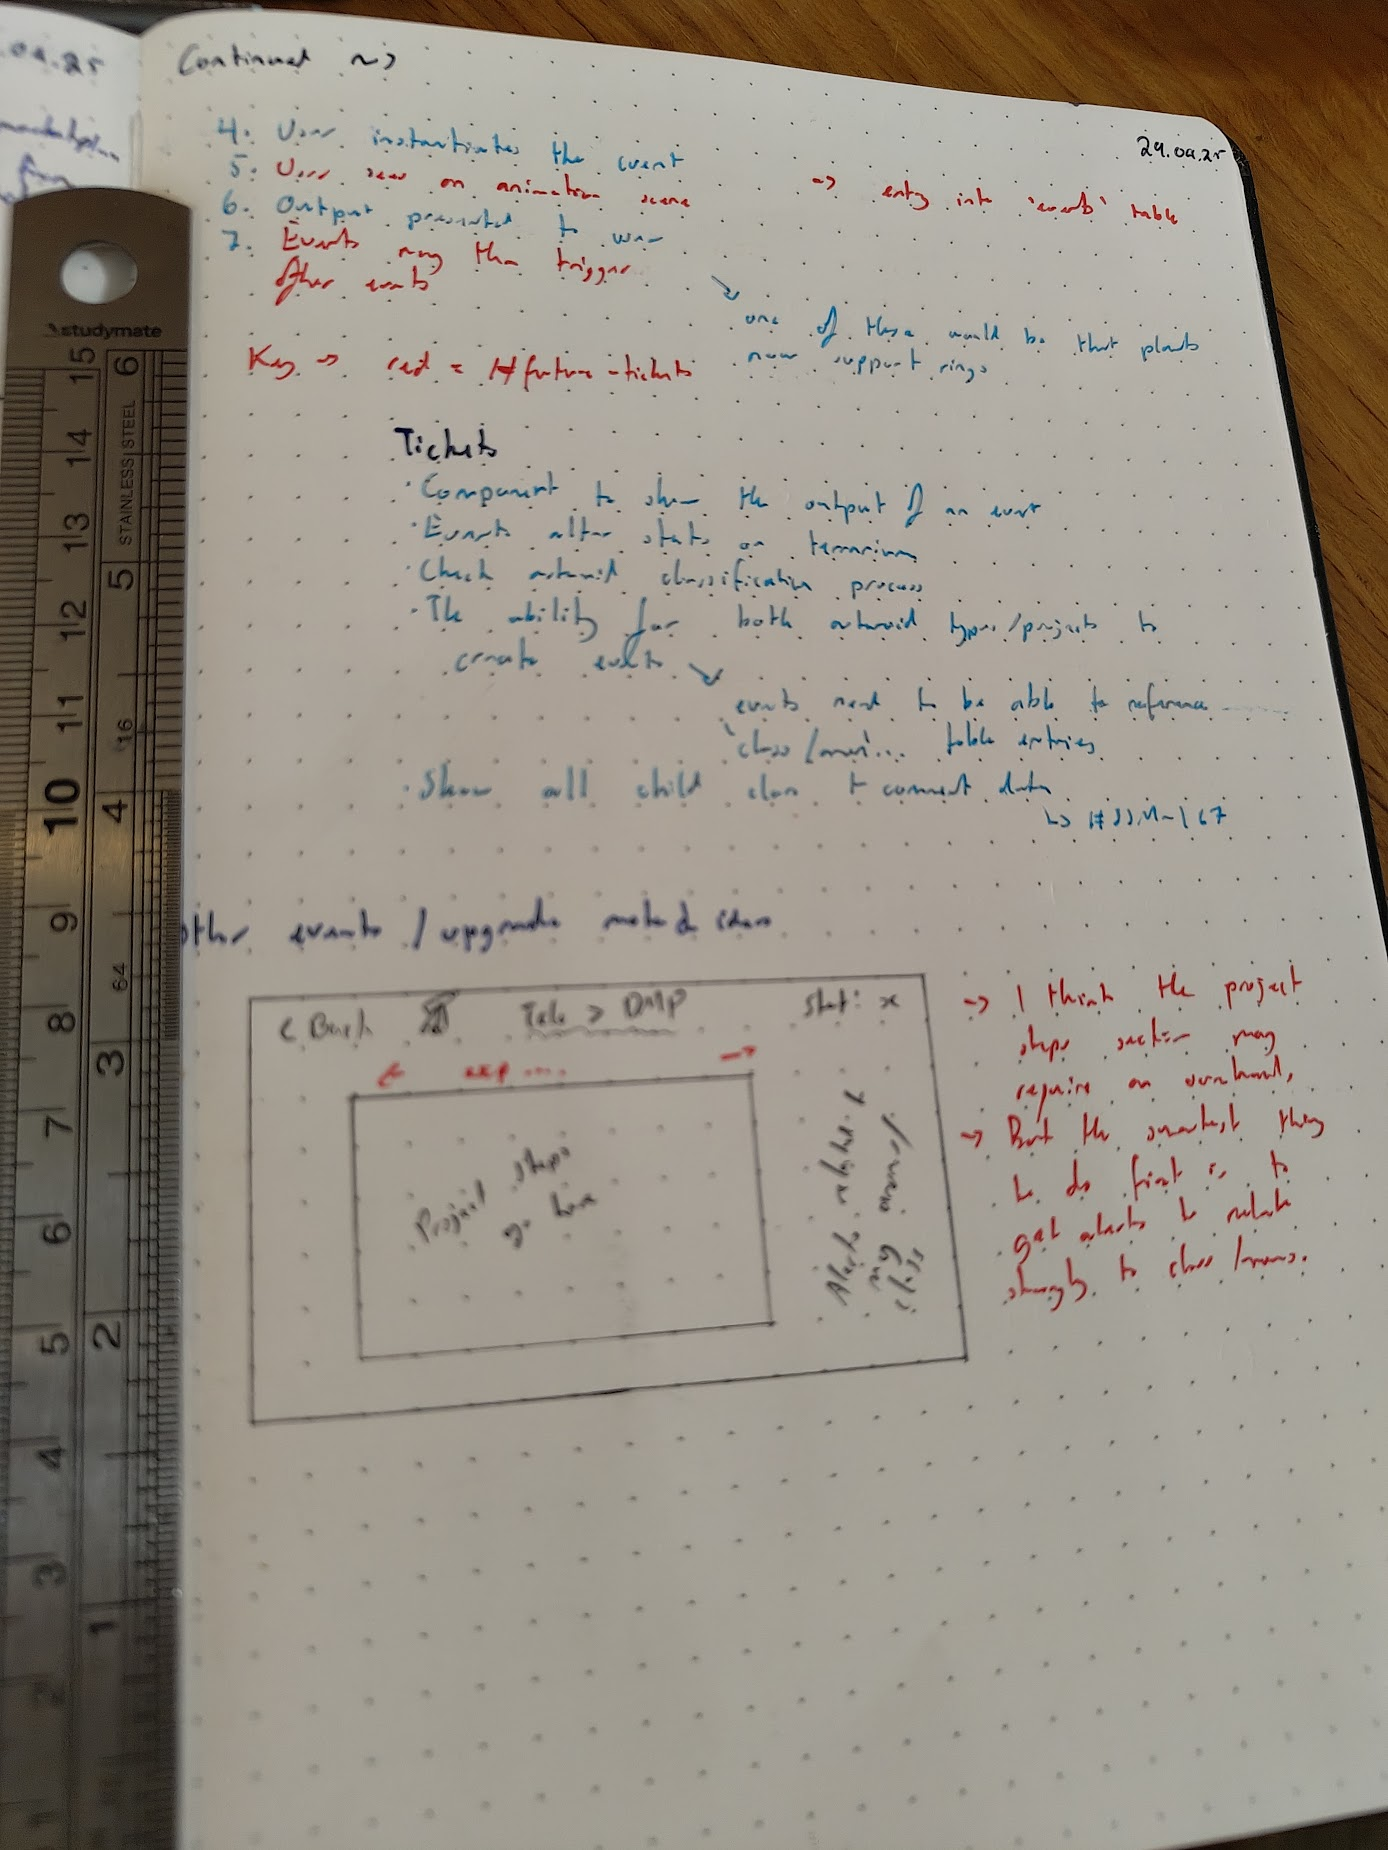 Continued ~>
29.09.25
4. User instantiates the event
5. User sees an animation scene
-> entry into 'events' table
6. Output presented to user
7. Events may then trigger
other events
one of these would be that plants
now support rings
Key -> red = #future-tickets
Tickets
· Component to show the output of an event
· Events alter stats on terrarium
· Check asteroid classification process
· The ability for both asteroid types/projects to
create events
events need to be able to reference
'class/ table entries
· Show all child class + comment data
Other events / upgrade ideas
< Back
> DMP
Stat: x
exp ....
Project steps
go here
Alerts related to
-> I think the project
steps section may
require an overhaul,
-> But the smartest thing
to do first is to
get alerts to relate
strongly to class
studymate
STAINLESS STEEL
15 14 13 12 11 10 9 8 7 6 5 4 3 2 1
6 5 4 3 2 1
16
64